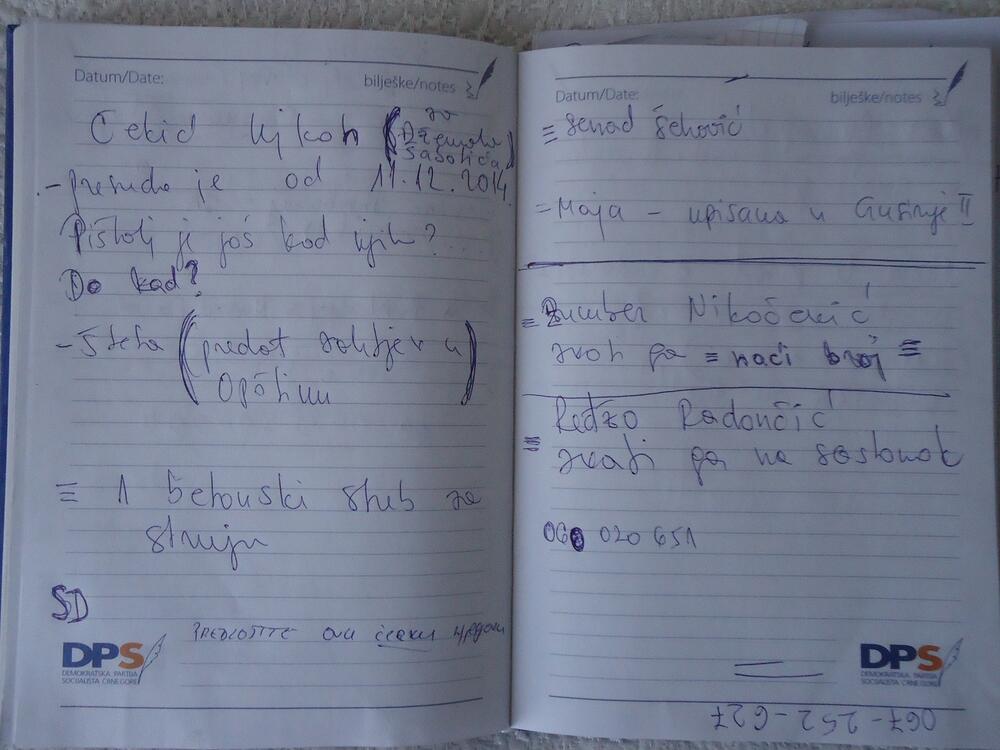 Datum/Date:
bilješke/notes
za
Cekić Vjkoh (Džemala
Šabotića)
- presuda je od 11.12.2014
Pištolj je još kod njih?
Do kad?
- Šteta (predat zahtjev u
Opštinu)
≡ 1 betonski stub za
struju
SD
PREDLOŽITE ovu
DPS
DEMOKRATSKA PARTIJA
SOCIJALISTA CRNE GORE
Datum/Date:
bilješke/notes
≡ Senad Šehović
= Maja - upisana u Gusinje II
≡ Džumber Nikočević
zvati ga ≡ naći broj ≡
Redžo Radončić
≡ zvati ga na sastanak
068 020 651
DPS
DEMOKRATSKA PARTIJA
SOCIJALISTA CRNE GORE
067-252-627